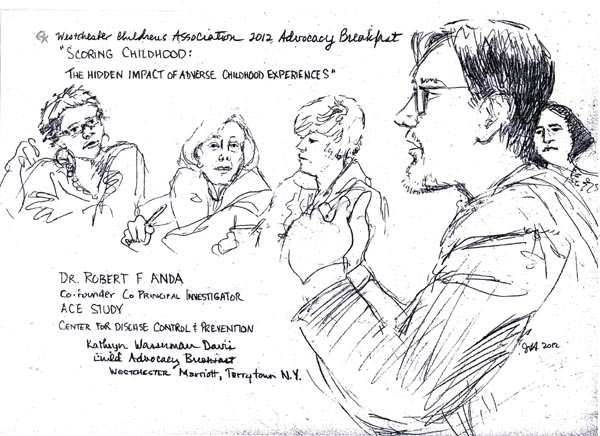 Westchester Childrens Association 2012 Advocacy Breakfast
"SCORING CHILDHOOD:
THE HIDDEN IMPACT OF ADVERSE CHILDHOOD EXPERIENCES"
DR. ROBERT F ANDA
Co-founder Co PRINCIPAL INVESTIGATOR
ACE STUDY
CENTER FOR DISEASE CONTROL & PREVENTION
Kathryn Wasserman Davis
Child Advocacy Breakfast
WESTCHESTER Marriott, Tarrytown N.Y.
2012